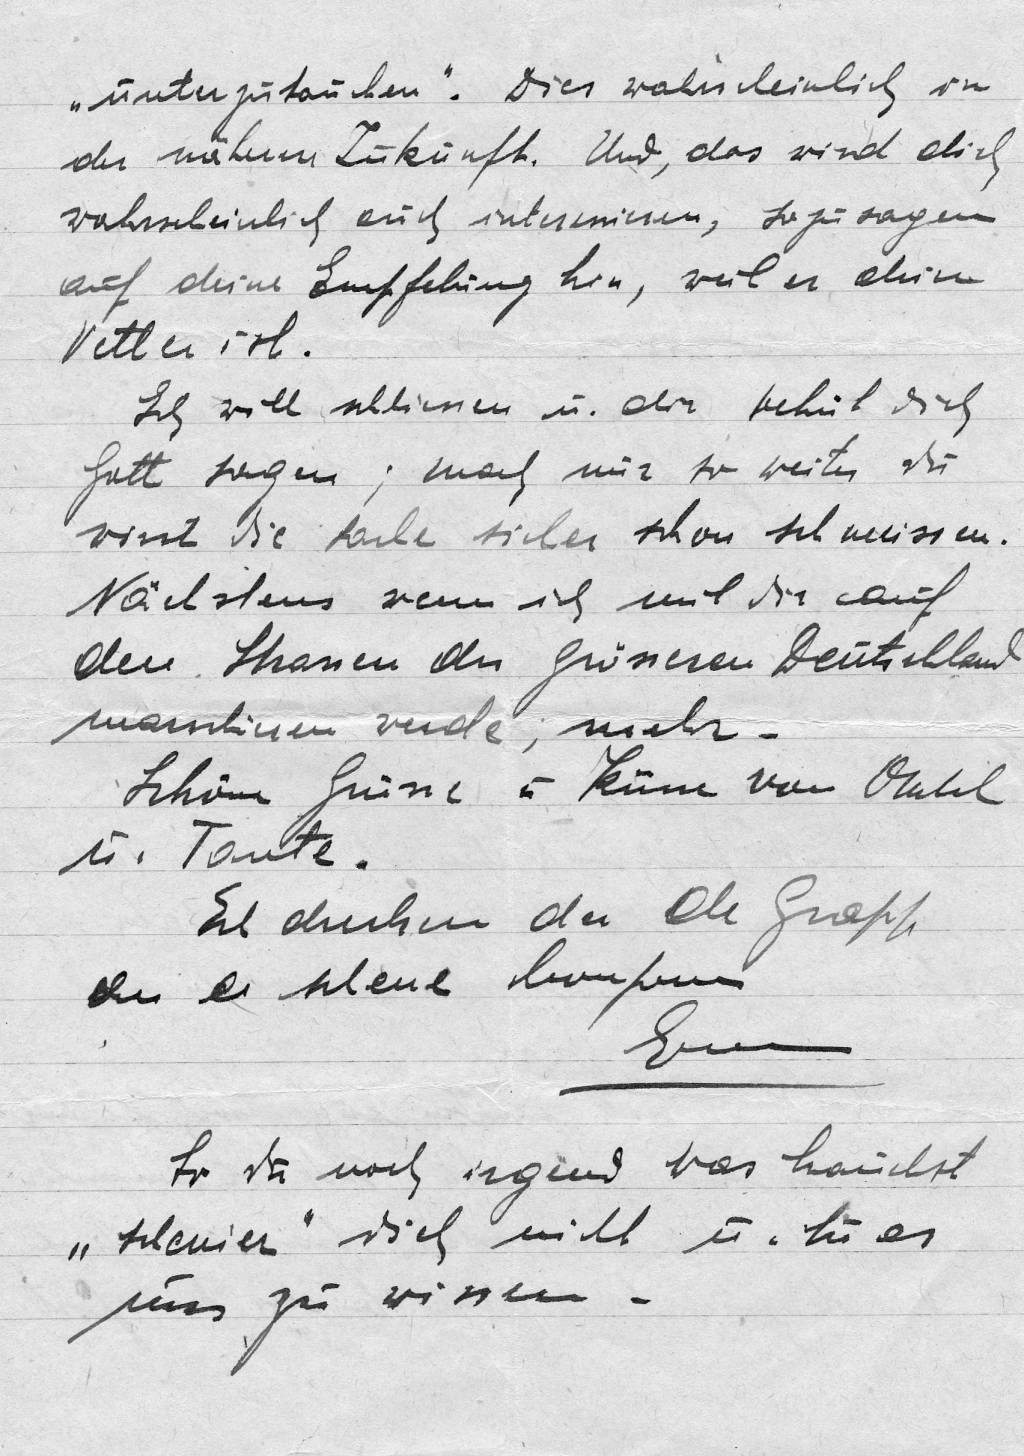 „unterzutauchen“. Dies wahrscheinlich in
der näheren Zukunft. Und, das wird dich
wahrscheinlich auch interessieren, sozusagen
auf deine Empfehlung hin, weil er dein
Vetter ist.
Ich will schliessen u. dir behüt dich
Gott sagen; mach nur so weiter du
wirst die Sache sicher schon schmeissen.
Nächstens wenn ich mit dir auf
den Strassen des grösseren Deutschland
marschieren werde, mehr –
Schöne Grüsse u Küsse von Onkel
u. Tante.
Es drücken der
der er
So du noch irgend was brauchst
„schenier“ dich nicht u. tu es
uns zu wissen –